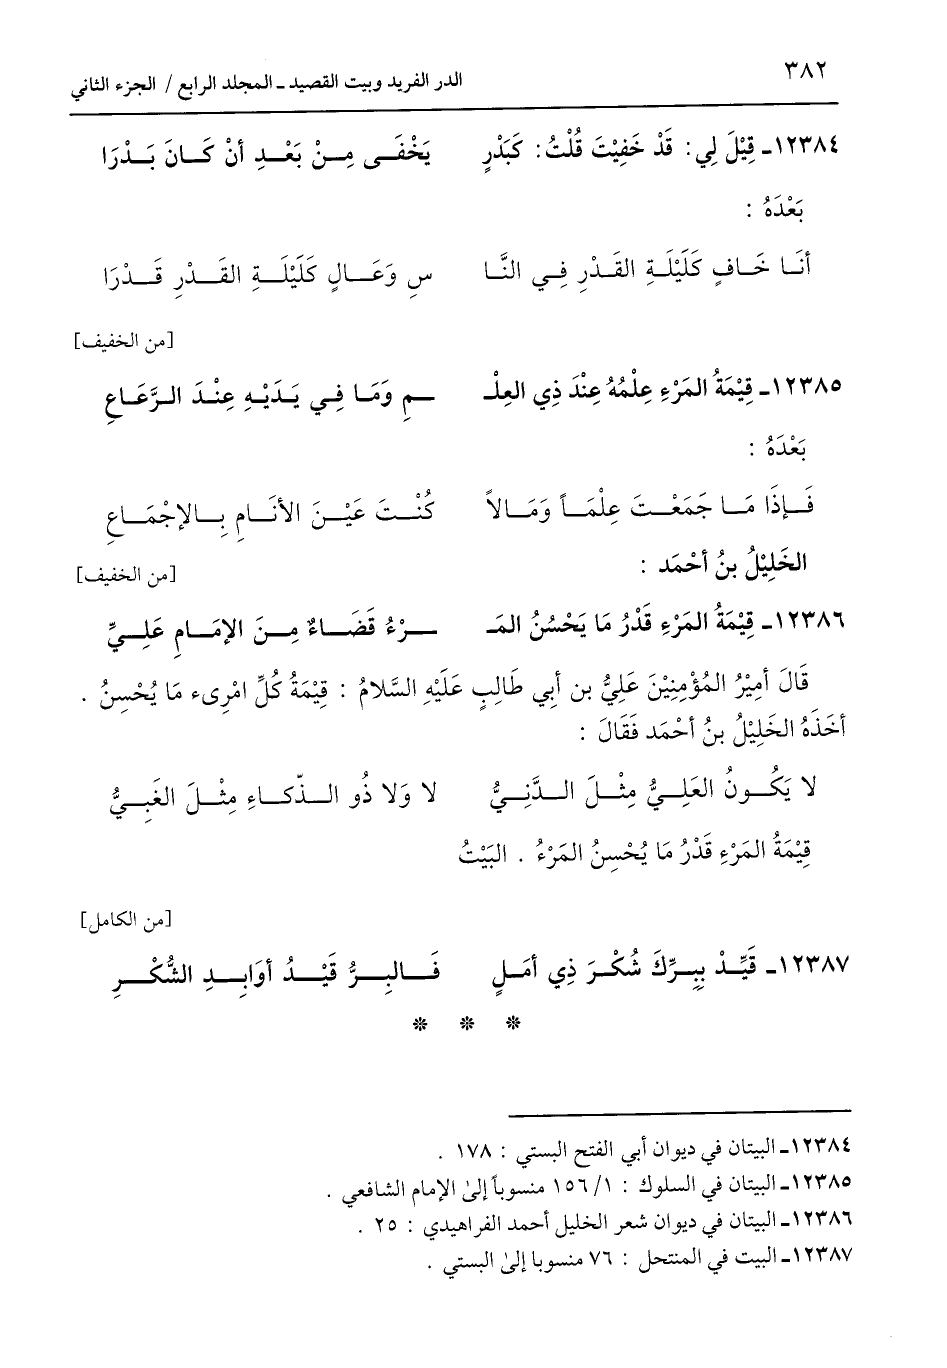 ٣٨٢
الدر الفريد وبيت القصيد ـ المجلد الرابع / الجزء الثاني
١٢٣٨٤ـ قِيْلَ لِي: قَدْ خَفِيْتَ قُلْتُ: كَبَدْرٍ يَخْفَــى مِــنْ بَعْــدِ أنْ كَــانَ بَــدْرَا
بَعْدَهُ :
أنَــا خَــافٍ كَلَيْلَــةِ القَــدْرِ فِــي النَّــا سِ وَعَــالٍ كَلَيْلَــةِ القَــدْرِ قَــدْرَا
[من الخفيف]
١٢٣٨٥ـ قِيْمَةُ المَرْءِ عِلْمُهُ عِنْدَ ذِي العِلْـ ـــمِ وَمَــا فِــي يَــدَيْــهِ عِنْــدَ الــرَّعَــاعِ
بَعْدَهُ :
فَــإِذَا مَــا جَمَعْــتَ عِلْمَــاً وَمَــالاً كُنْــتَ عَيْــنَ الأنَــامِ بِــالإجْمَــاعِ
الخَلِيْلُ بنُ أحْمَد :
[من الخفيف]
١٢٣٨٦ـ قِيْمَةُ المَرْءِ قَدْرُ مَا يَحْسُنُ المَـ ـــرْءُ قَضَــاءٌ مِــنَ الإمَــامِ عَلِــيِّ
قَالَ أمِيْرُ المُؤْمِنِيْنَ عَلِيُّ بن أبي طَالِبٍ عَلَيْهِ السَّلامُ : قِيْمَةُ كُلِّ امْرِىء مَا يُحْسِنُ .
أخَذَهُ الخَلِيْلُ بنُ أحْمَد فَقَالَ :
لا يَكُــونُ العَلِــيُّ مِثْــلَ الــدَّنِــيُّ لا وَلا ذُو الــذّكــاءِ مِثْــلَ الغَبِــيُّ
قِيْمَةُ المَرْءِ قَدْرُ مَا يُحْسِنُ المَرْءُ . البَيْتُ
[من الكامل]
١٢٣٨٧ـ قَيِّــدْ بِبِــرِّكَ شُكْــرَ ذِي أمَــلٍ فَــالبِــرُّ قَيْــدُ أوَابِــدِ الشُّكْــرِ
* * *
١٢٣٨٤ـ البيتان في ديوان أبي الفتح البستي : ١٧٨ .
١٢٣٨٥ـ البيتان في السلوك : ١/ ١٥٦ منسوباً إلى الإمام الشافعي .
١٢٣٨٦ـ البيتان في ديوان شعر الخليل أحمد الفراهيدي : ٢٥ .
١٢٣٨٧ـ البيت في المنتحل : ٧٦ منسوبا إلى البستي .